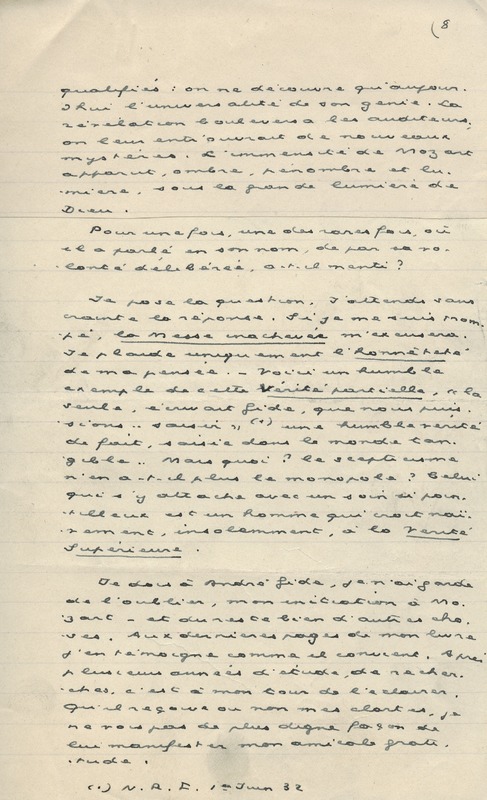 (8
qualifiés : on ne découvre qu'aujour.
d'hui l'universalité de son génie. La
révélation bouleversa les auditeurs,
on leur entr'ouvrait de nouveaux
mystères. L'immensité de Mozart
apparut, ombre, pénombre et lu.
mière, sous la grande lumière de
Dieu.
Pour une fois, une des rares fois, où
il a parlé en son nom, de par sa vo.
lonté délibérée, a-t-il menti ?
Je pose la question. J'attends sans
crainte la réponse. Si je me suis trom.
pé, la Messe inachevée m'excusera.
Je plaide uniquement l'honnêteté
de ma pensée. - Voici un humble
exemple de cette Vérité partielle, "la
seule, écrivait Gide, que nous puis.
sions .. saisir", (1) une humble vérité
de fait, saisie dans le monde tan.
gible .. Mais quoi ? le scepticisme
n'en a-t-il plus le monopole ? Celui
qui s'y attache avec un soin si poin.
tilleux est un homme qui croit naï.
vement, insolemment, à la Vérité
Supérieure.
Je dois à André Gide, je n'ai garde
de l'oublier, mon initiation à Mo.
zart - et du reste bien d'autres cho.
ses. Aux dernières pages de mon livre
j'en témoigne comme il convient. Après
plusieurs années d'étude, de recher.
ches, c'est à mon tour de l'éclairer.
Qu'il reçoive ou non mes clartés, je
ne vois pas de plus digne façon de
lui manifester mon amicale grati.
tude.
(1) N.R.F. 1er Juin 32